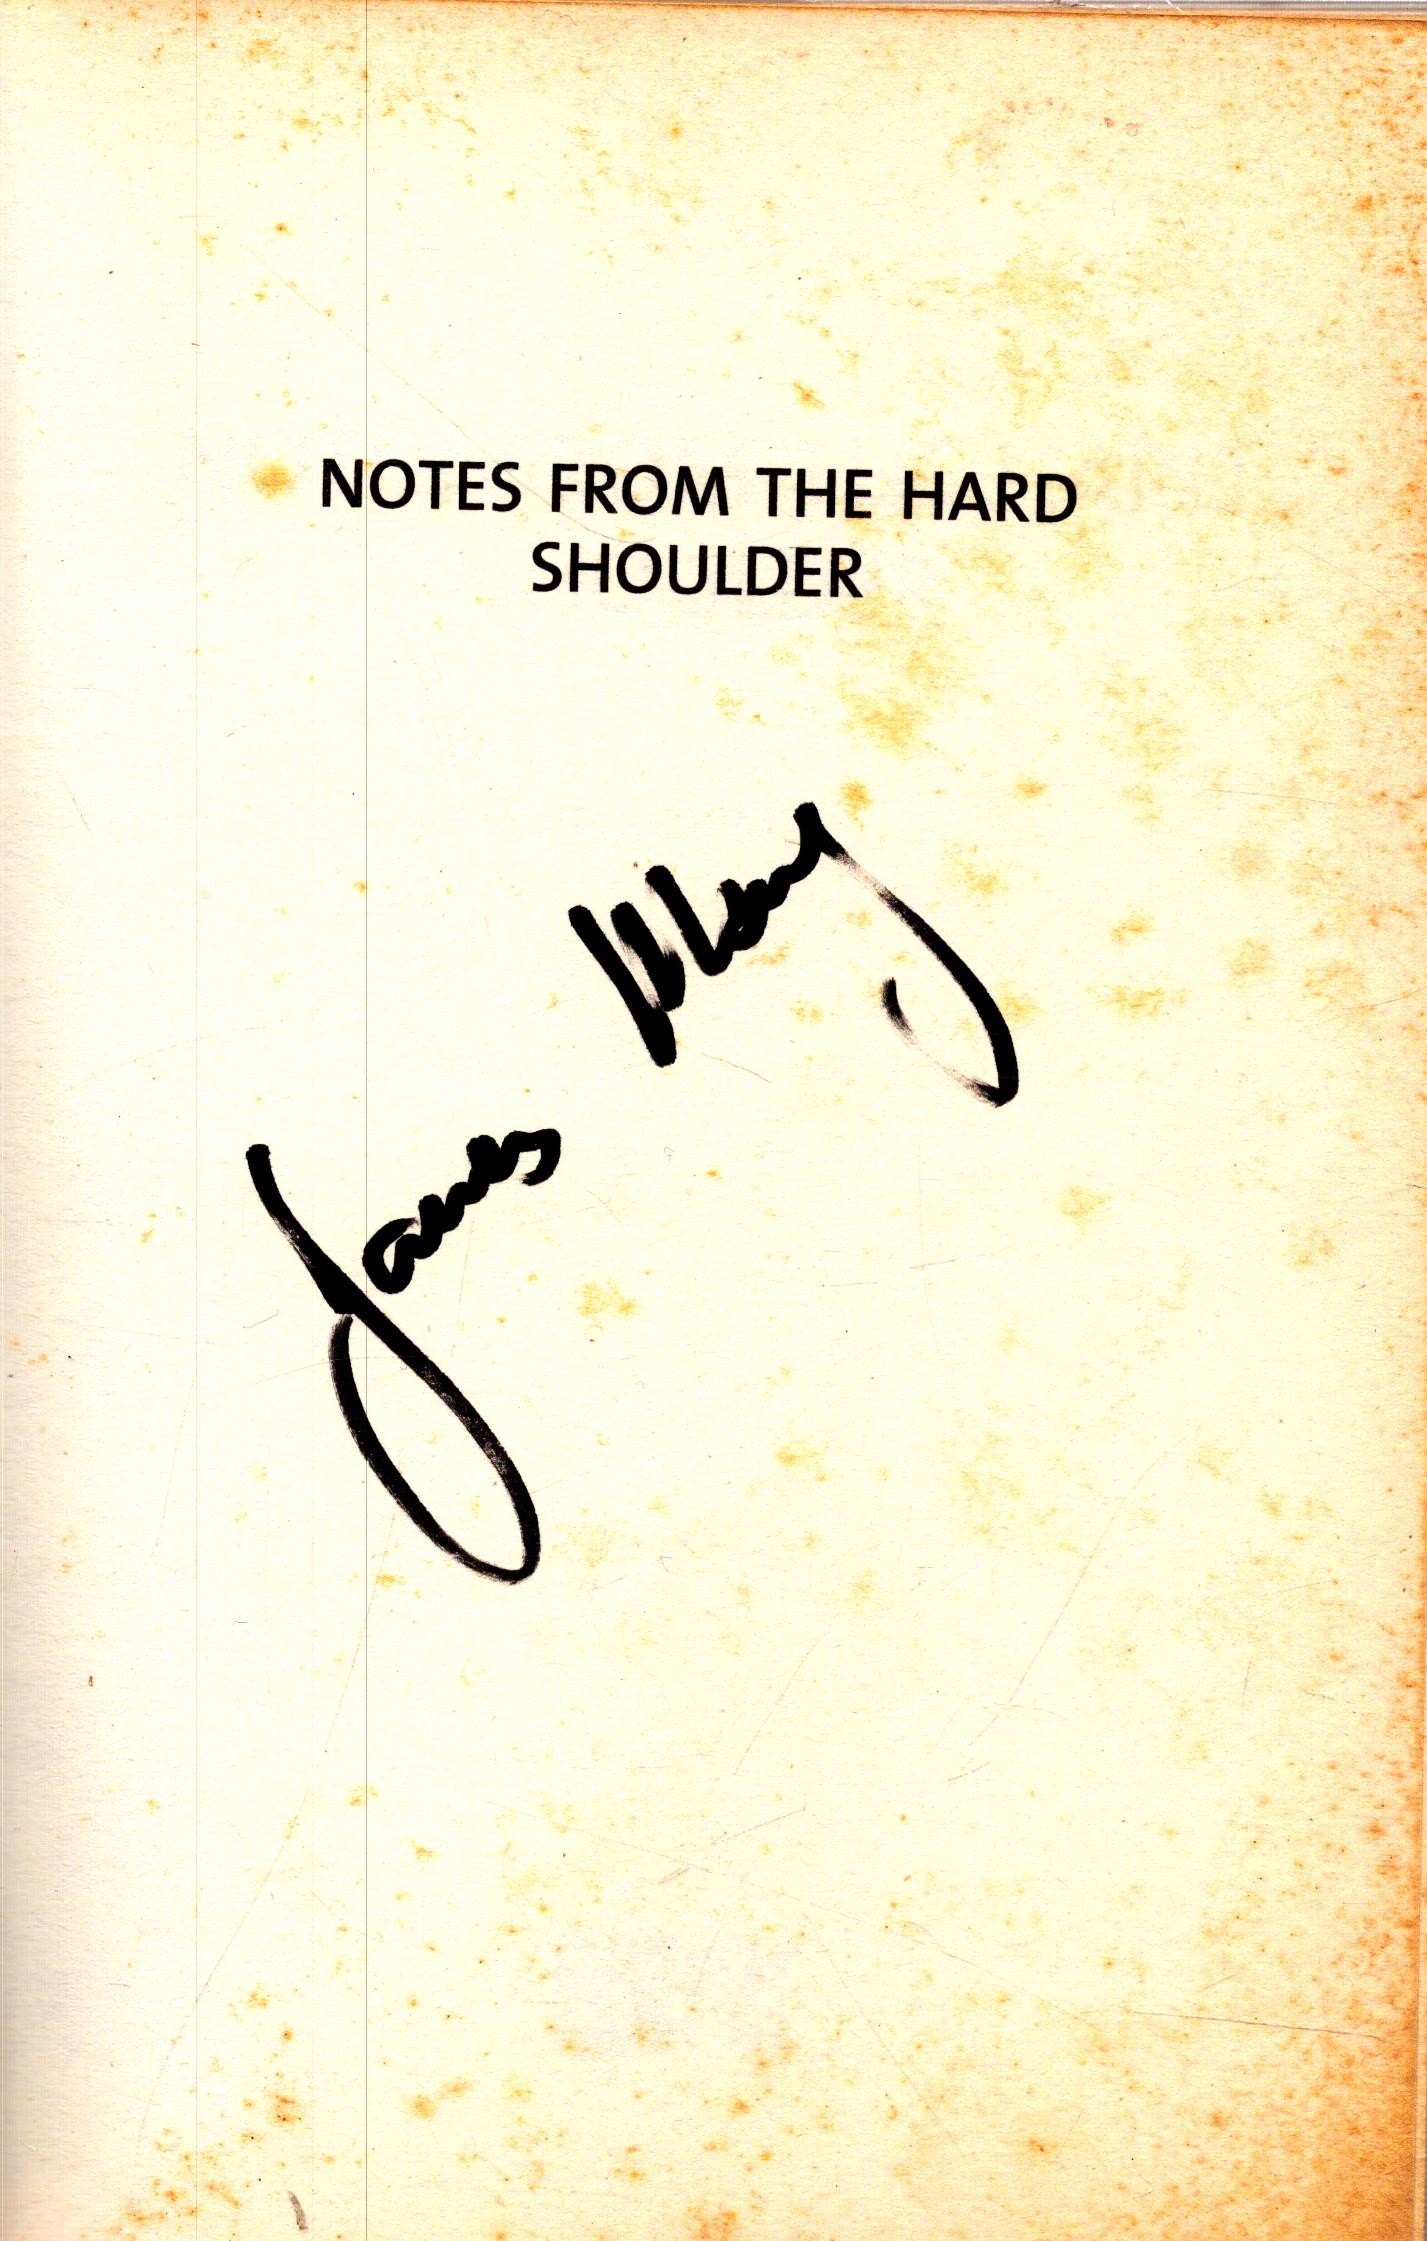 NOTES FROM THE HARD
SHOULDER
James May